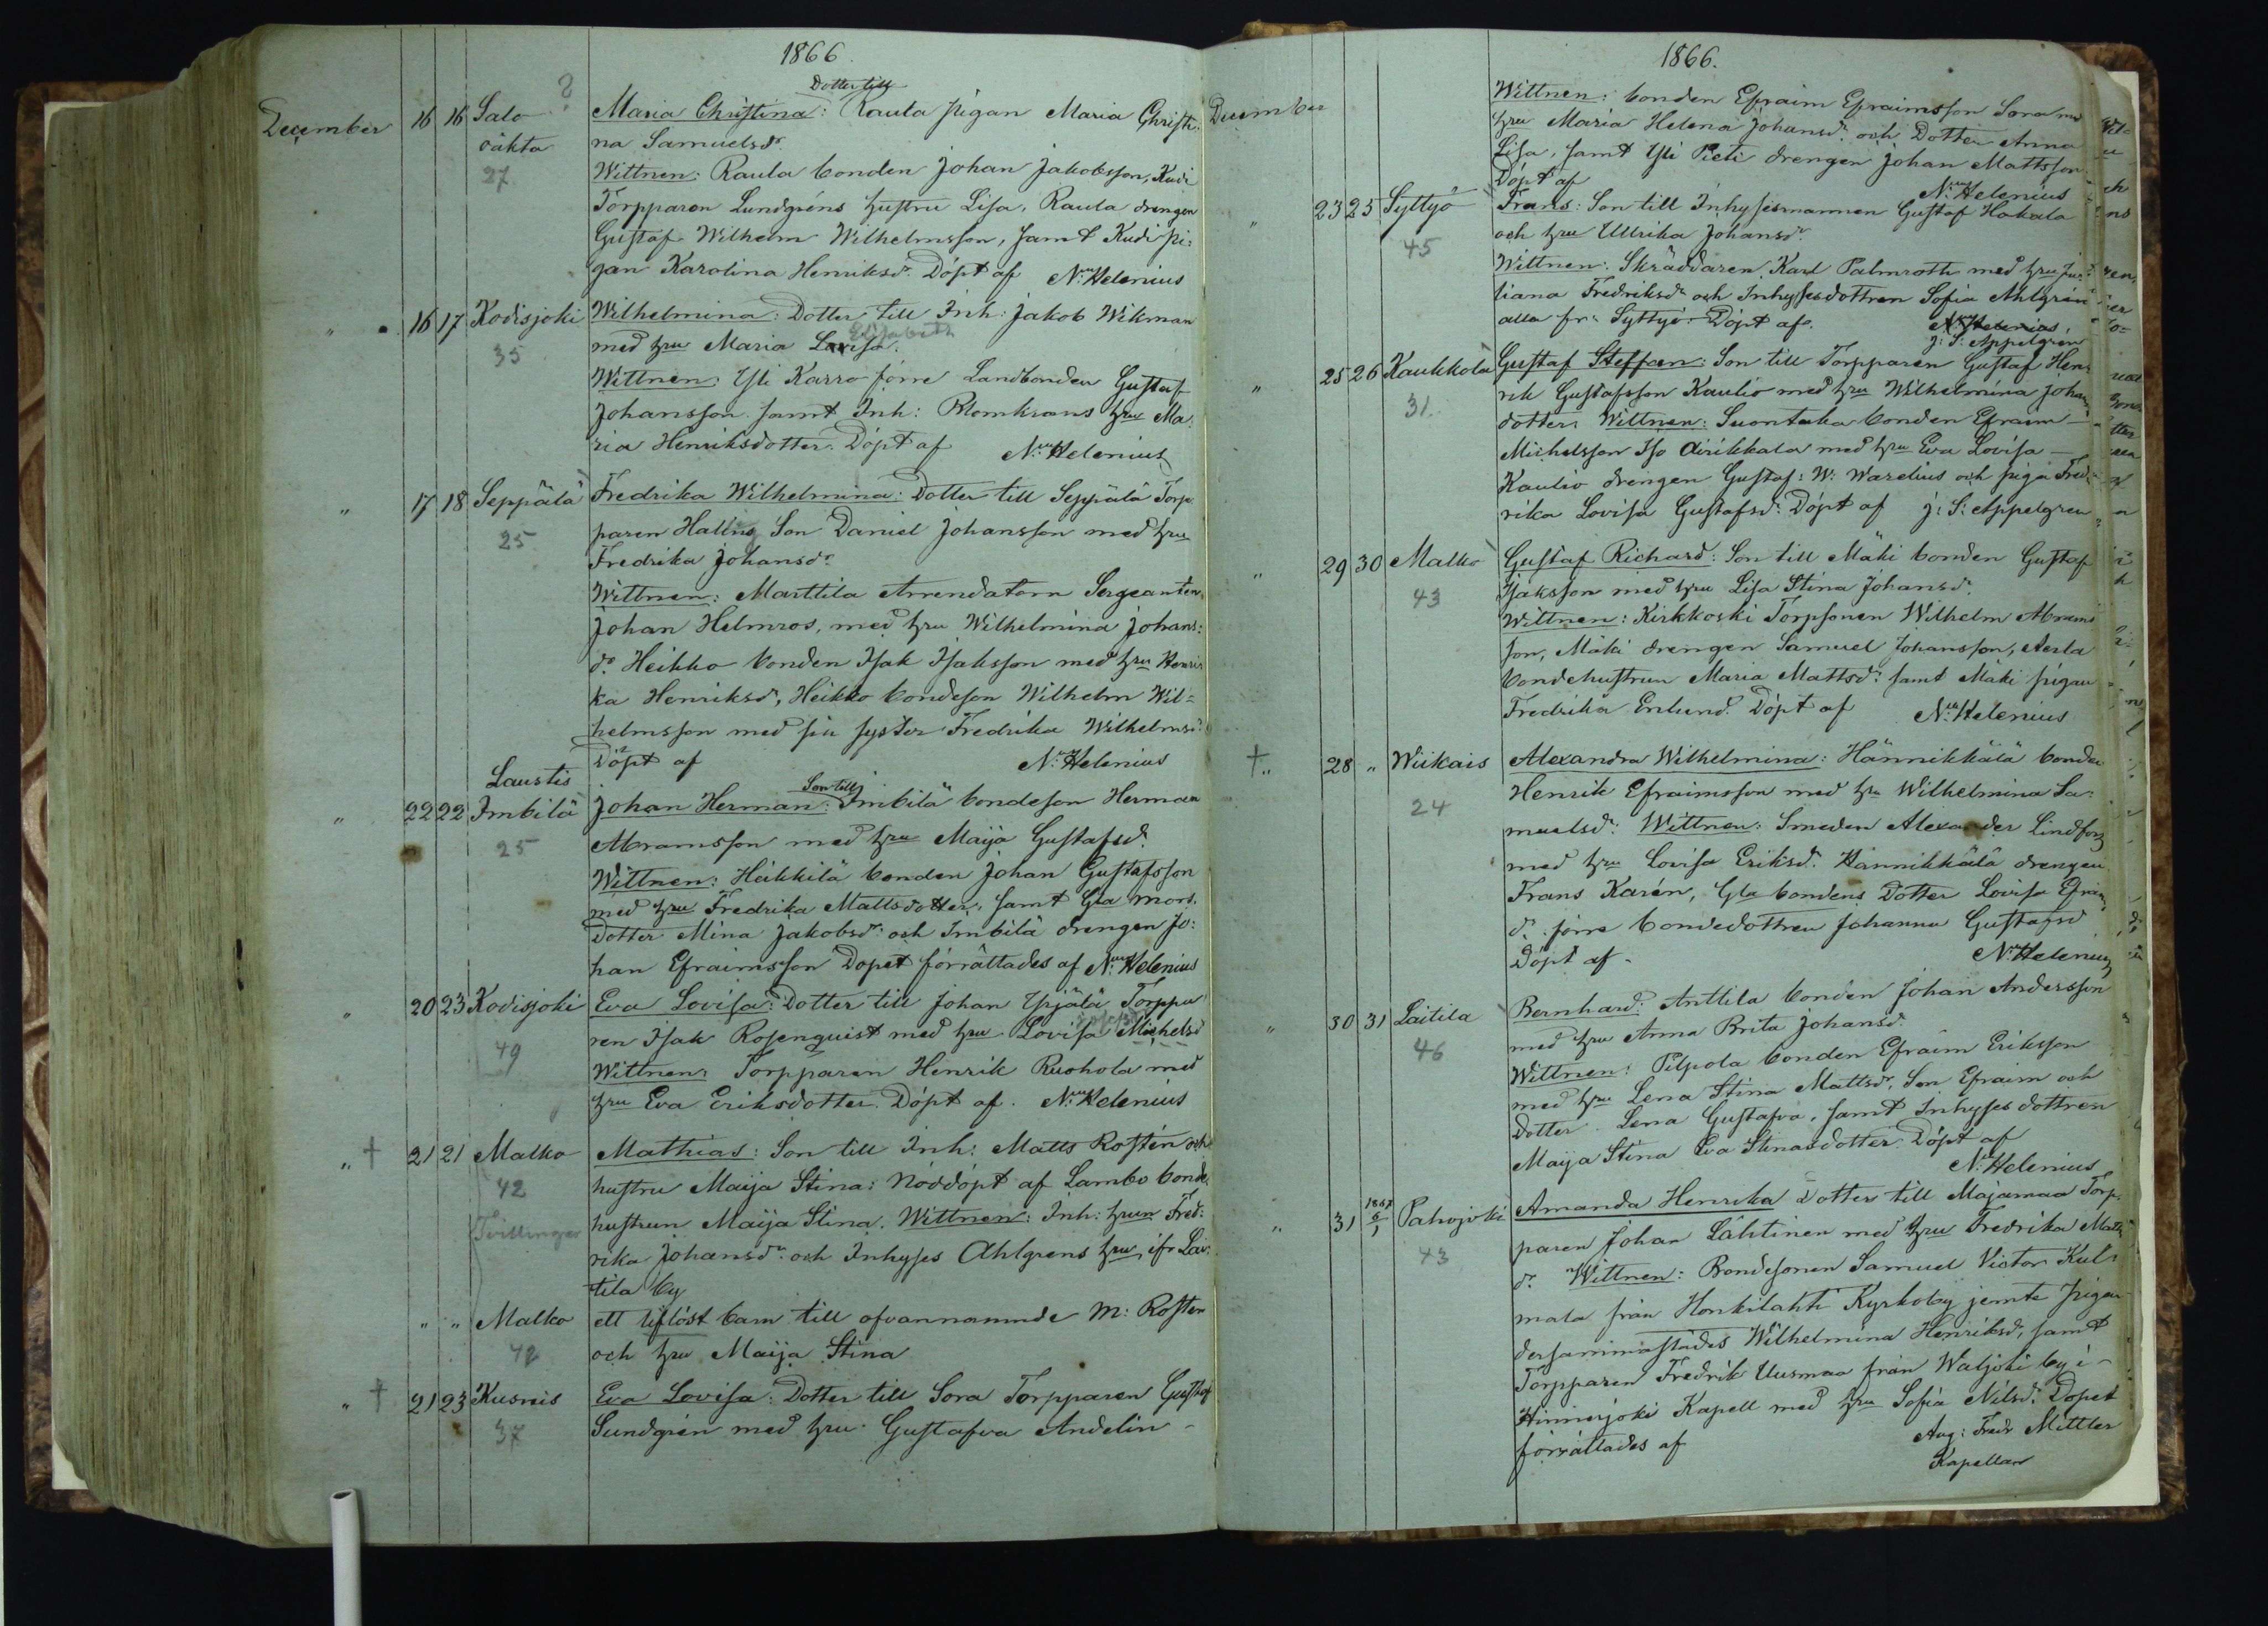 1866.
Dotter till
December 16 16 Salo Maria Christina: Rauta pigan Maria Christi:
oäkta na Samuelsdr.
27 Wittnen: Raula bonden Johan Jakobsson, Kudi
Torpparen Lundgréns hustru Lisa, Raula drengen
Gustaf Wilhelm Wilhelmsson, samt Kudi pi:
gan Karolina Henriksdr. Döpt af N. Helenius
" 16 17 Kodisjoki Wilhelmina: Dotter till Inh: Jakob Wikman
Elisabeth
35 med hru Maria Lovisa.
Wittnen: Yli Karro förre Landbonden Gustaf
Johansson samt Inh: Blomkrans hru Ma:
ria Henriksdotter. Döpt af N. Helenius
" 17 18 Seppälä Fredrika Wilhelmina: Dotter till Seppälä Torp:
25 paren Hallus Son Daniel Johansson med hru
Fredrika Johansdr.
Wittnen: Marttila Arrendatorn Sergeanten
Johan Helmros, med hru Wilhelmina Johans:
dr. Heikko bonden Isak Isaksson med hru Henri
ka Henriksdr, Heikko bondeson Wilhelm Wil=
helmsson med sin syster Fredrika Wilhelmsdr.
Döpt af N. Helenius
Laustis
Son till
" 22 22 Imbilä Johan Herman: Imbilä bondeson Herman
25 Abramsson med hru Maija Gustafsdr.
Wittnen: Heikkilä bonden Johan Gustafsson
med hru Fredrika Mattsdotter, samt Gla mors
Dotter Mina Jakobsdr. och Imbilä drengen Jo:
han Efraimsson Dopet förrättades af N. Helenius
" 20 23 Kodisjoki Eva Lovisa: Dotter till Johan Yrjälä Torppa
49 ren Isak Rosenquist med hru Lovisa Michelsd
Wittnen: Torpparen Henrik Ruohola med
hru Eva Eriksdotter. Döpt af. N. Helenius
" † 21 21 Malko Mathias: Son till Inh: Matts Rostén och
42 hustru Maija Stina: Nöddöpt af Lambo bonde
Tvillingar hustrun Maija Stina. Wittnen: Inh: hrun Fred:
rika Johansdr. och Inhyses Ahlgrens hru, ifr Lai:
tila by
" " Malko ett liflöst barn till ofvannämnde M: Rosten
42 och hru Maija Stina
" † 21 23 Kusnis Eva Lovisa: Dotter till Sora Torpparen Gustaf
37 Sundgrén med hru Gustafva Andelin
1866.
December Wittnen: bonden Efraim Efraimsson Sora med
hru Maria Helena Johansdr. och Dotter Anna
Lisa, samt Yli Pieti drengen Johan Mattsson
Döpt af N. Helenius
" 23 25 Syttyö Frans: Son till Inhysesmannen Gustaf Hakala
45 och hru Ullrika Johansdr.
Wittnen: Skräddaren Karl Palmroth med hru Ju:
liana Fredriksdr. och Inhysesdottren Sofia Ahlgrén
alla fr: Syttyö. Döpt af. N. Helenius
J: S: Appelgren
" 25 26 Kaukkola Gustaf Steffan: Son till Torpparen Gustaf Hen:
31 rik Gustafsson Kaulio med hru Wilhelmina Johans
dotter. Wittnen: Suontaka bonden Efraim
Michelsson Iso Airikkala med hru Eva Lovisa
Kaulio drengen Gustaf: W: Warelius och piga Fred:
rika Lovisa Gustafsdr: Döpt af J: S: Appelgren
" 29 30 Malko Gustaf Richard: Son till Mäki bonden Gustaf
43 Isaksson med hru Lisa Stina Johansdr.
Wittnen: Kirkkoski Torpsonen Wilhelm Abrams
son, Mäki drengen Samuel Johansson, Aerla
bondehustrun Maria Mattsdr: samt Mäki pigan
Fredrika Enlund. Döpt af N. Helenius
† " 28 " Wiikais Alexandra Wilhelmina: Hännikkälä bonden
24 Henrik Efraimsson med hru Wilhelmina Sa:
muelsdr: Wittnen: Smeden Alexander Lindfors
med hru Lovisa Eriksdr. Hännikkälä drengen
Frans Karén, Gla bondens Dotter Lovisa Efraims
dr. förre bondedottren Johanna Gustafsd
Döpt af. N. Helenius
" 30 31 Laitila Bernhard: Anttila bonden Johan Andersson
46 med hru Anna Brita Johansdr.
Wittnen: Pilpola bonden Efraim Eriksson
med hru Lena Stina Mattsdr, Son Efraim och
Dotter Lena Gustafva, samt Inhyses dottren
Maija Stina Eva Stinasdotter. Döpt af
N. Helenius
" 31 1867 6/1 Pahojoki Amanda Henrika Dotter till Majamaa Torp:
43 paren Johan Lähtinen med hru Fredrika Matts
dr. Wittnen: Bondesonen Samuel Victor Kul:
mala från Honkilahti Kyrkoby jemte pigan
dersammastädes Wilhelmina Henriksd, samt
Torpparen Fredrik Uusmaa från Waljoki by i
Hinnerjoki Kapell med hru Sofia Nilsdr. Dopet
förrättades af Aug: Fredr Mittler
Kapellan